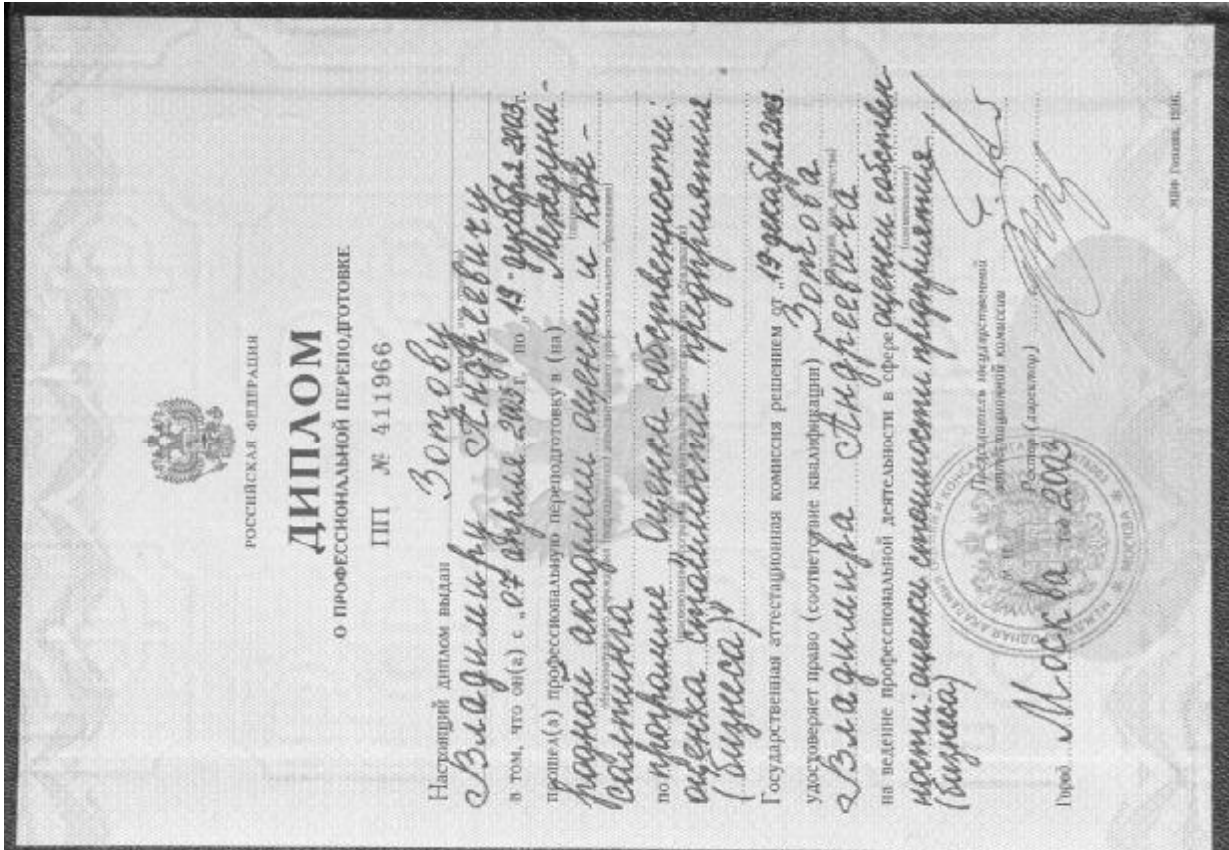 РОССИЙСКАЯ ФЕДЕРАЦИЯ
ДИПЛОМ
О ПРОФЕССИОНАЛЬНОЙ ПЕРЕПОДГОТОВКЕ
ПП № 411966
Настоящий диплом выдан Зотову
Владимиру Андреевичу
в том, что он(а) с „07“ апреля 2003 г. по „19“ декабря 2003 г.
прошел(а) профессиональную переподготовку в (на) Междуна-
родной академии оценки и кон-
салтинга
по программе Оценка собственности:
оценка стоимости предприятия
(бизнеса)
Государственная аттестационная комиссия решением от „19 декабря 2003
удостоверяет право (соответствие квалификации) Зотова
Владимира Андреевича
на ведение профессиональной деятельности в сфере оценки собствен-
ности: оценки стоимости предприятия
(бизнеса)
Председатель государственной
аттестационной комиссии
Ректор (директор)
Город Москва 2003
МОСКВА